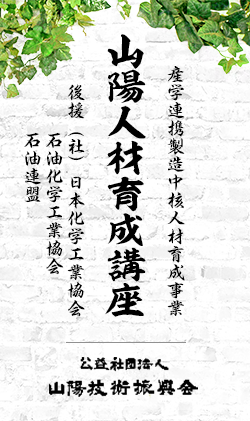 産学連携製造中核人材育成事業
山陽人材育成講座
後援 （社）日本化学工業協会
石油化学工業協会
石油連盟
公益社団法人
山陽技術振興会